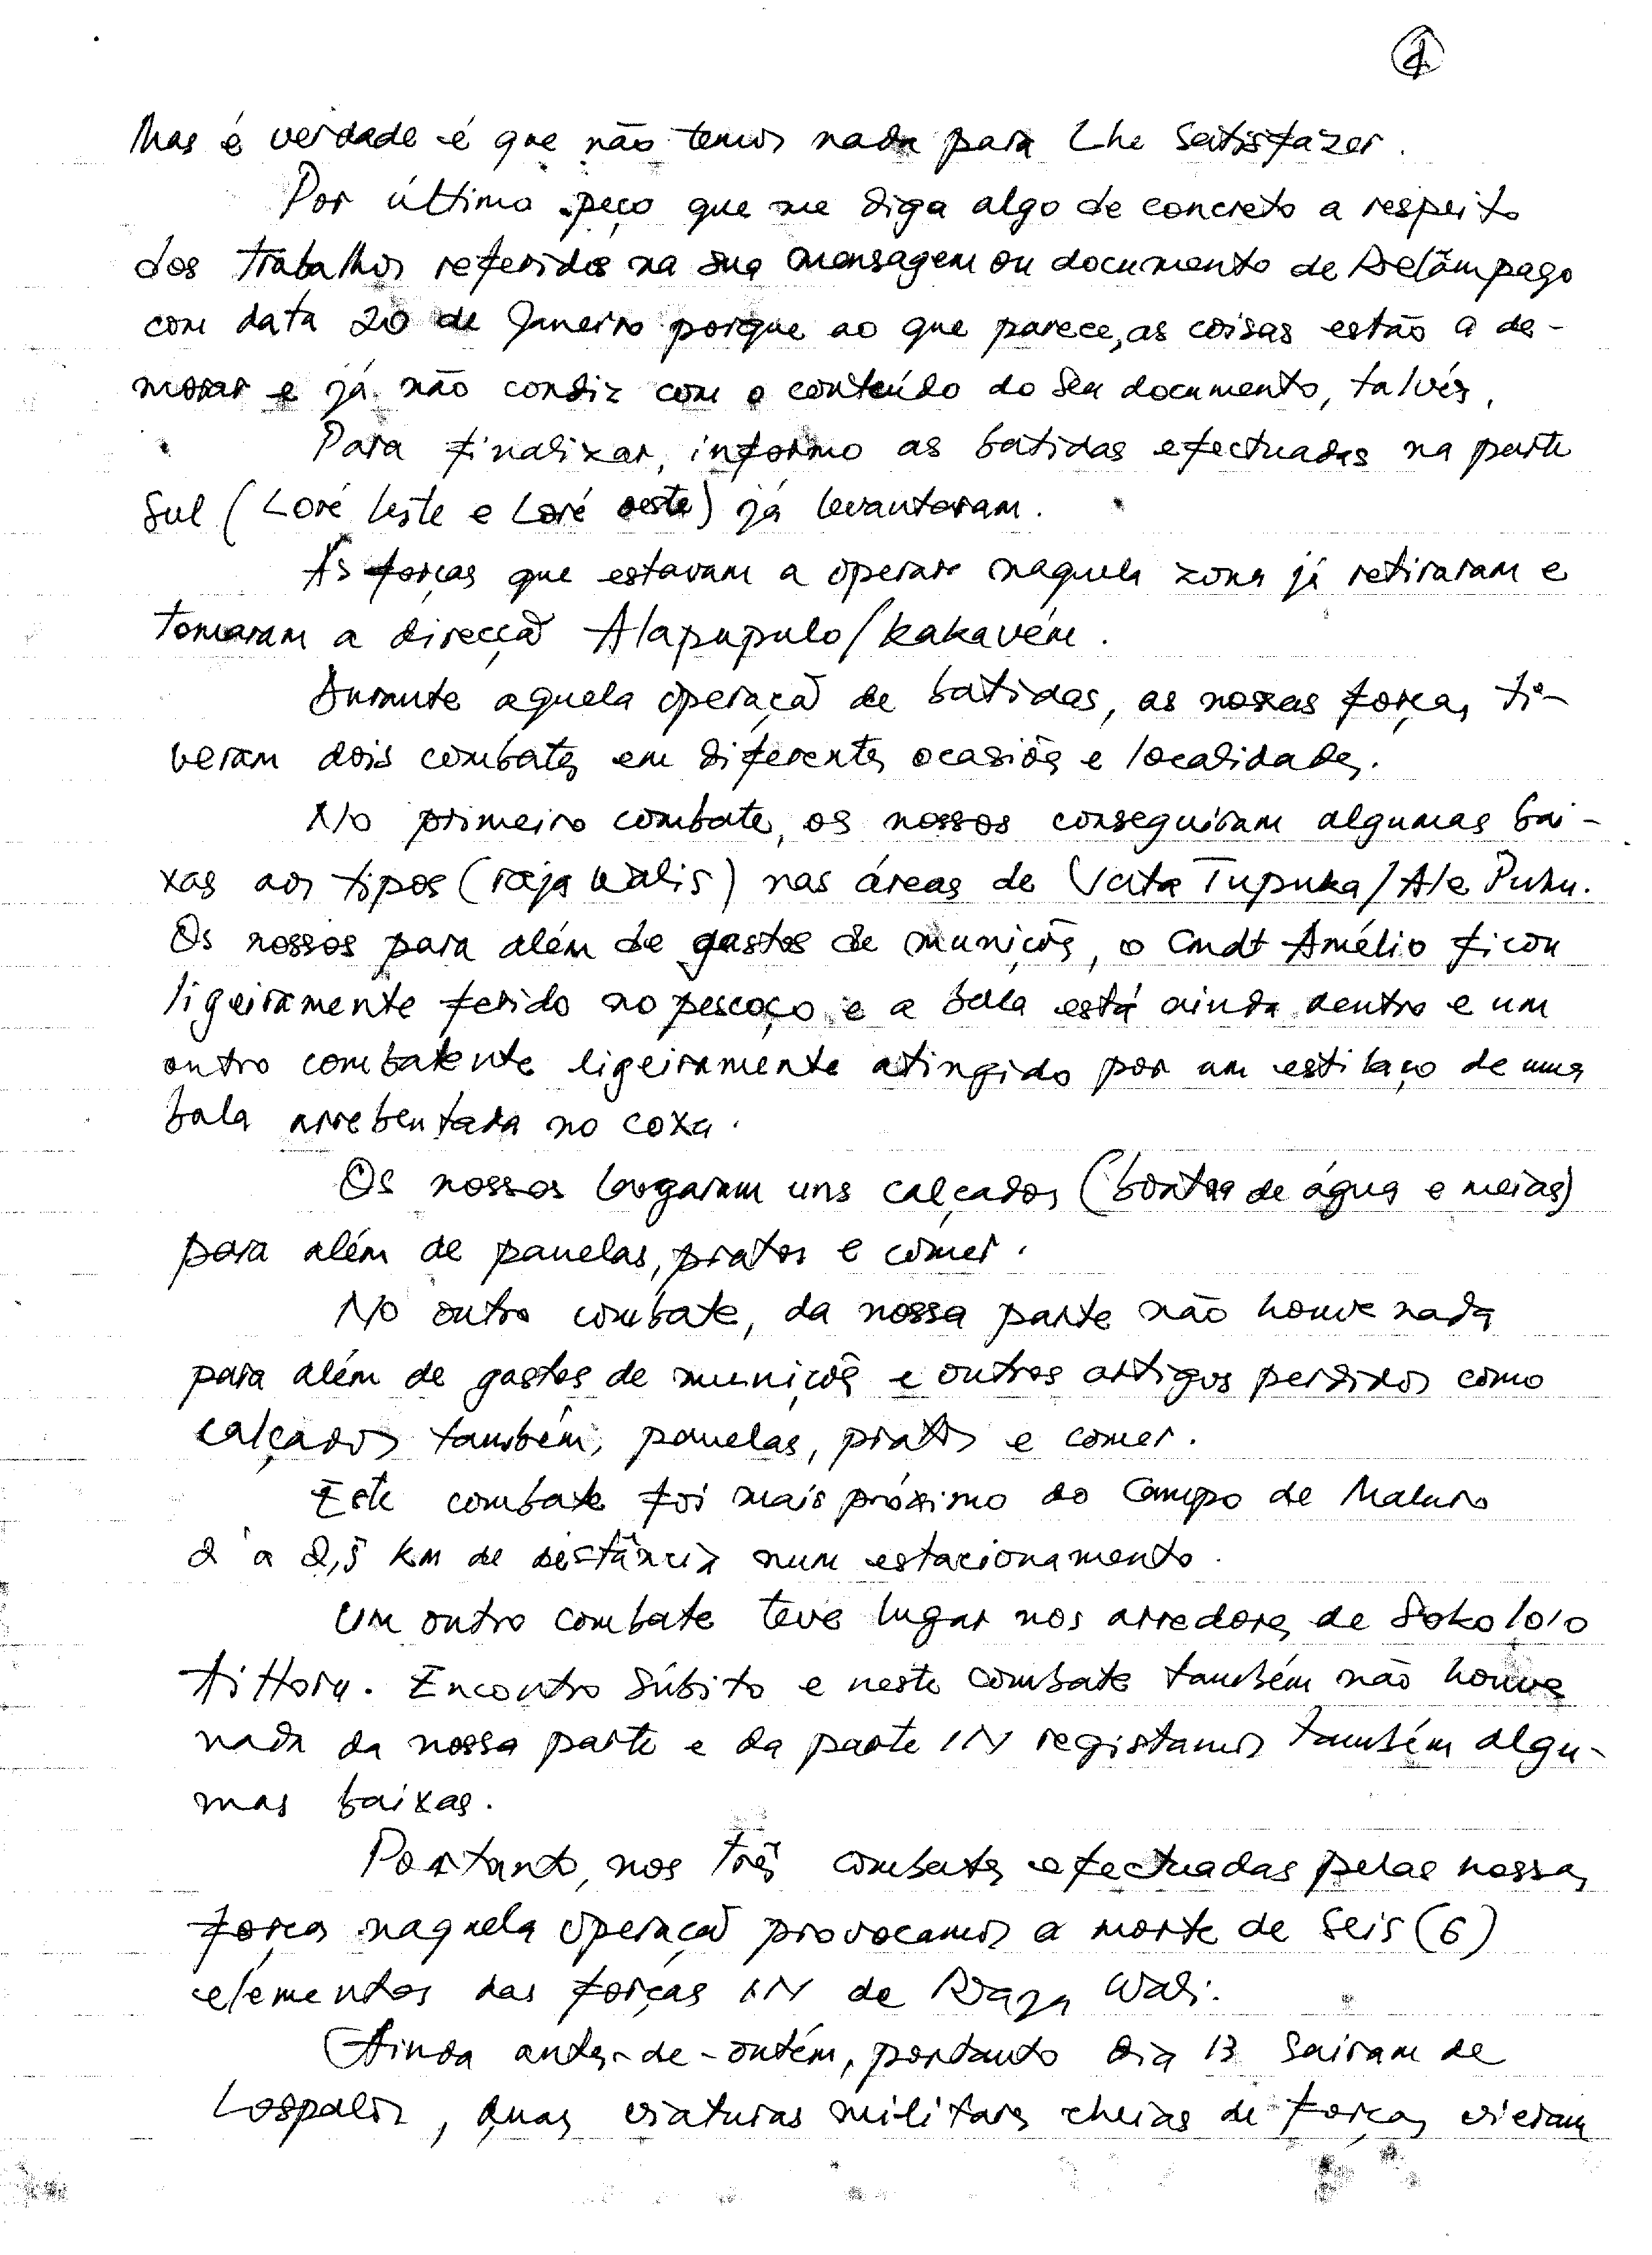 Mas é verdade é que não temos nada para Lhe satisfazer.
Por último peço que me diga algo de concreto a respeito
dos trabalhos referidos na sua mensagem ou documento de Relâmpago
com data 20 de Janeiro porque ao que parece, as coisas estão a de-
morar e já não condiz com o conteúdo do seu documento, talvés,
Para finalizar, informo as batidas efectuadas na parte
Sul (Loré leste e Loré oeste) já levantaram.
As forças que estavam a operar naquela zona já retiraram e
tomaram a direcção Alapupulo/Kakavém.
Durante aquela operação de batidas, as nossas forças ti-
veram dois combates em diferentes ocasiões e localidades.
No primeiro combate, os nossos conseguiram algumas bai-
xas aos tipos (raja Walis) nas áreas de Vata Tupuka/Ale Puhu.
Os nossos para além de gastos de munições, o Cmdt Amélio ficou
ligeiramente ferido no pescoço e a bala está ainda dentro e um
outro combatente ligeiramente atingido por um estilaço de uma
bala arrebentada no coxa.
Os nossos largaram uns calçados (bontas de água e meias)
para além de panelas, pratos e comer.
No outro combate, da nossa parte não houve nada
para além de gastos de munições e outros artigos perdidos como
calçados também, panelas, pratos e comer.
Este combate foi mais próximo do Campo de Maluro
2 a 2,5 km de distância num estacionamento.
Um outro combate teve lugar nos arredores de Sokololo
Aittoru. Encontro Súbito e neste combate também não houve
nada da nossa parte e da parte IN registamos também algu-
mas baixas.
Portanto, nos três combates efectuadas pelas nossas
forças naquela operação provocamos a morte de seis (6)
elementos das forças IN de Raja Wali.
Ainda antes-de-ontém, portanto dia 13 Sairam de
Lospalos, duas viaturas militares cheias de forças vieram